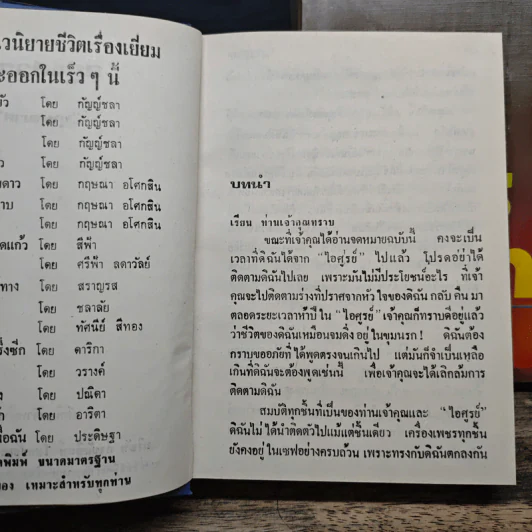 วนิยายชีวิตเรื่องเยี่ยม
ะออกในเร็ว ๆ นี้
บัว โดย กัญญ์ชลา
โดย กัญญ์ชลา
โดย กัญญ์ชลา
ว โดย กัญญ์ชลา
ยดาว โดย กฤษณา อโศกสิน
าบ โดย กฤษณา อโศกสิน
โดย กฤษณา อโศกสิน
ดแก้ว โดย สีฟ้า
โดย ศรีฟ้า ลดาวัลย์
ทาง โดย สราญรส
โดย ชลาลัย
โดย ทัศนีย์ สีทอง
ริ่งซีก โดย ดาริกา
โดย วรางค์
ง โดย ปณิตา
โดย อาริตา
พื่อฉัน โดย ประดิษฐา
ดพิมพ์ ขนาดมาตรฐาน
ของ เหมาะสำหรับทุกท่าน
บทนำ
เรียน ท่านเจ้าคุณทราบ
ขณะที่เจ้าคุณได้อ่านจดหมายฉบับนี้ คงจะเป็น
เวลาที่ดิฉันได้จาก "ไอศูรย์" ไปแล้ว โปรดอย่าได้
ติดตามดิฉันไปเลย เพราะมันไม่มีประโยชน์อะไร ที่เจ้า
คุณจะไปติดตามร่างที่ปราศจากหัวใจของดิฉัน กลับ คืน มา
ตลอดระยะเวลาห้าปี ใน "ไอศูรย์" เจ้าคุณก็ทราบดีอยู่แล้ว
ว่าชีวิตของดิฉันเหมือนจมดิ่ง อยู่ ในขุมนรก! ดิฉันต้อง
กราบขออภัยที่ ได้พูดตรงจนเกินไป แต่มันก็จำเป็นเหลือ
เกินที่ดิฉันจะต้องพูดเช่นนี้ เพื่อเจ้าคุณจะได้เลิกล้มการ
ติดตามดิฉัน
สมบัติทุกชิ้นที่เป็นของท่านเจ้าคุณและ "ไอศูรย์"
ดิฉันไม่ ได้นำติดตัวไปแม้แต่ชิ้นเดียว เครื่องเพชรทุกชิ้น
ยังคงอยู่ ในเซฟอย่างครบถ้วน เพราะทรงกับดิฉันตกลงกัน